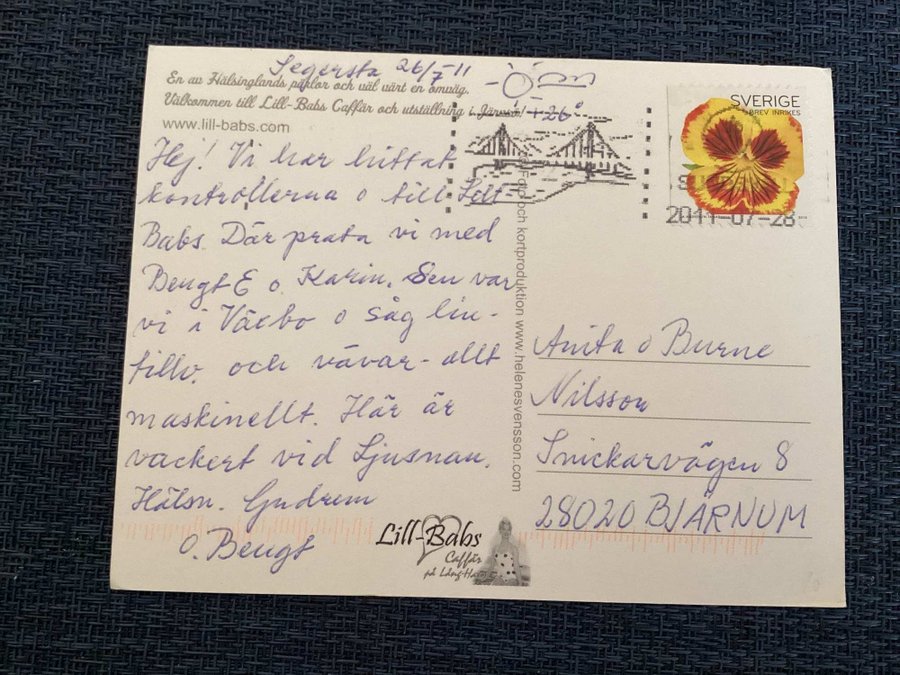 Segersta 26/7-11
En av Hälsinglands pärlor och väl värt en omväg.
Välkommen till Lill-Babs Caffär och utställning i Järvsö!
+26°
www.lill-babs.com
Hej! Vi har hittat
kontrollerna o till Lill
Babs. Där prata vi med
Bengt E o. Karin. Sen var
vi i Växbo o såg lin-
tillv. och vävar- allt
maskinellt. Här är
vackert vid Ljusnan.
Hälsn. Gudrun
o. Bengt
Foto och kortproduktion www.helenesvensson.com
Lill-Babs
Caffär
på Lång-Hans
SVERIGE
BREV INRIKES
2011-07-28
Anita o Burne
Nilsson
Snickarvägen 8
28020 BJÄRNUM